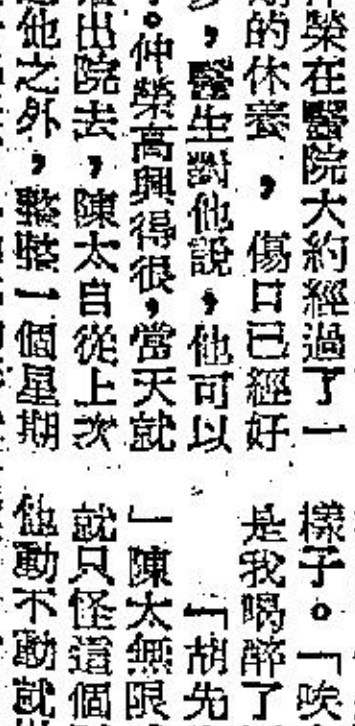 榮在醫院大約經過了一
的休養,傷口已經好
,醫生對他說,他可以
。仲榮高興得很,當天就
出院去,陳太自從上次
他之外,整整一個星期
樣子。「唉
是我喝醉了
「胡先
」陳太無限
就只怪這個
他動不動就